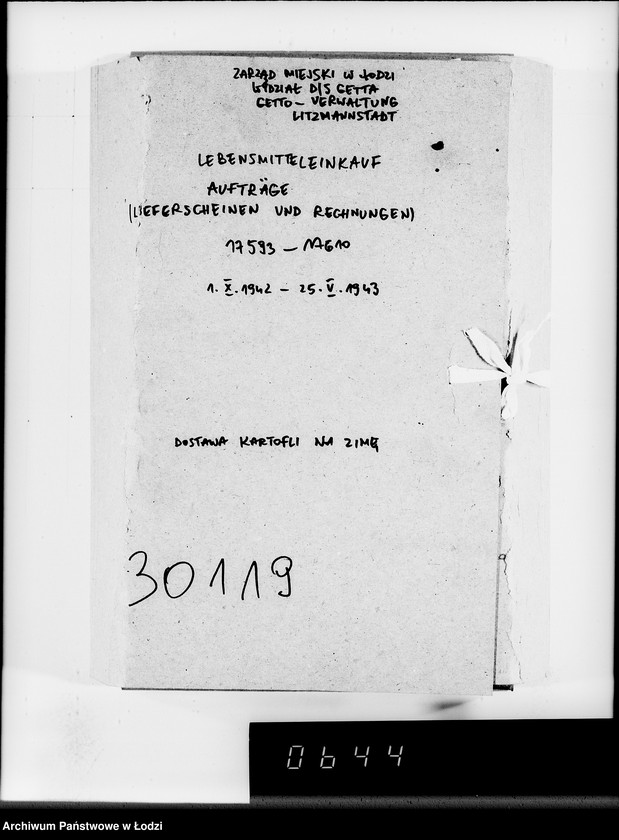 ZARZĄD MIEJSKI W ŁODZI
WYDZIAŁ D/S GETTA
GETTO - VERWALTUNG
LITZMANNSTADT
LEBENSMITTELEINKAUF
AUFTRÄGE
(LIEFERSCHEINEN UND RECHNUNGEN)
17593 - 17610
1. X. 1942 - 25. V. 1943
DOSTAWA KARTOFLI NA ZIMĘ
30119
0644
Archiwum Państwowe w Łodzi